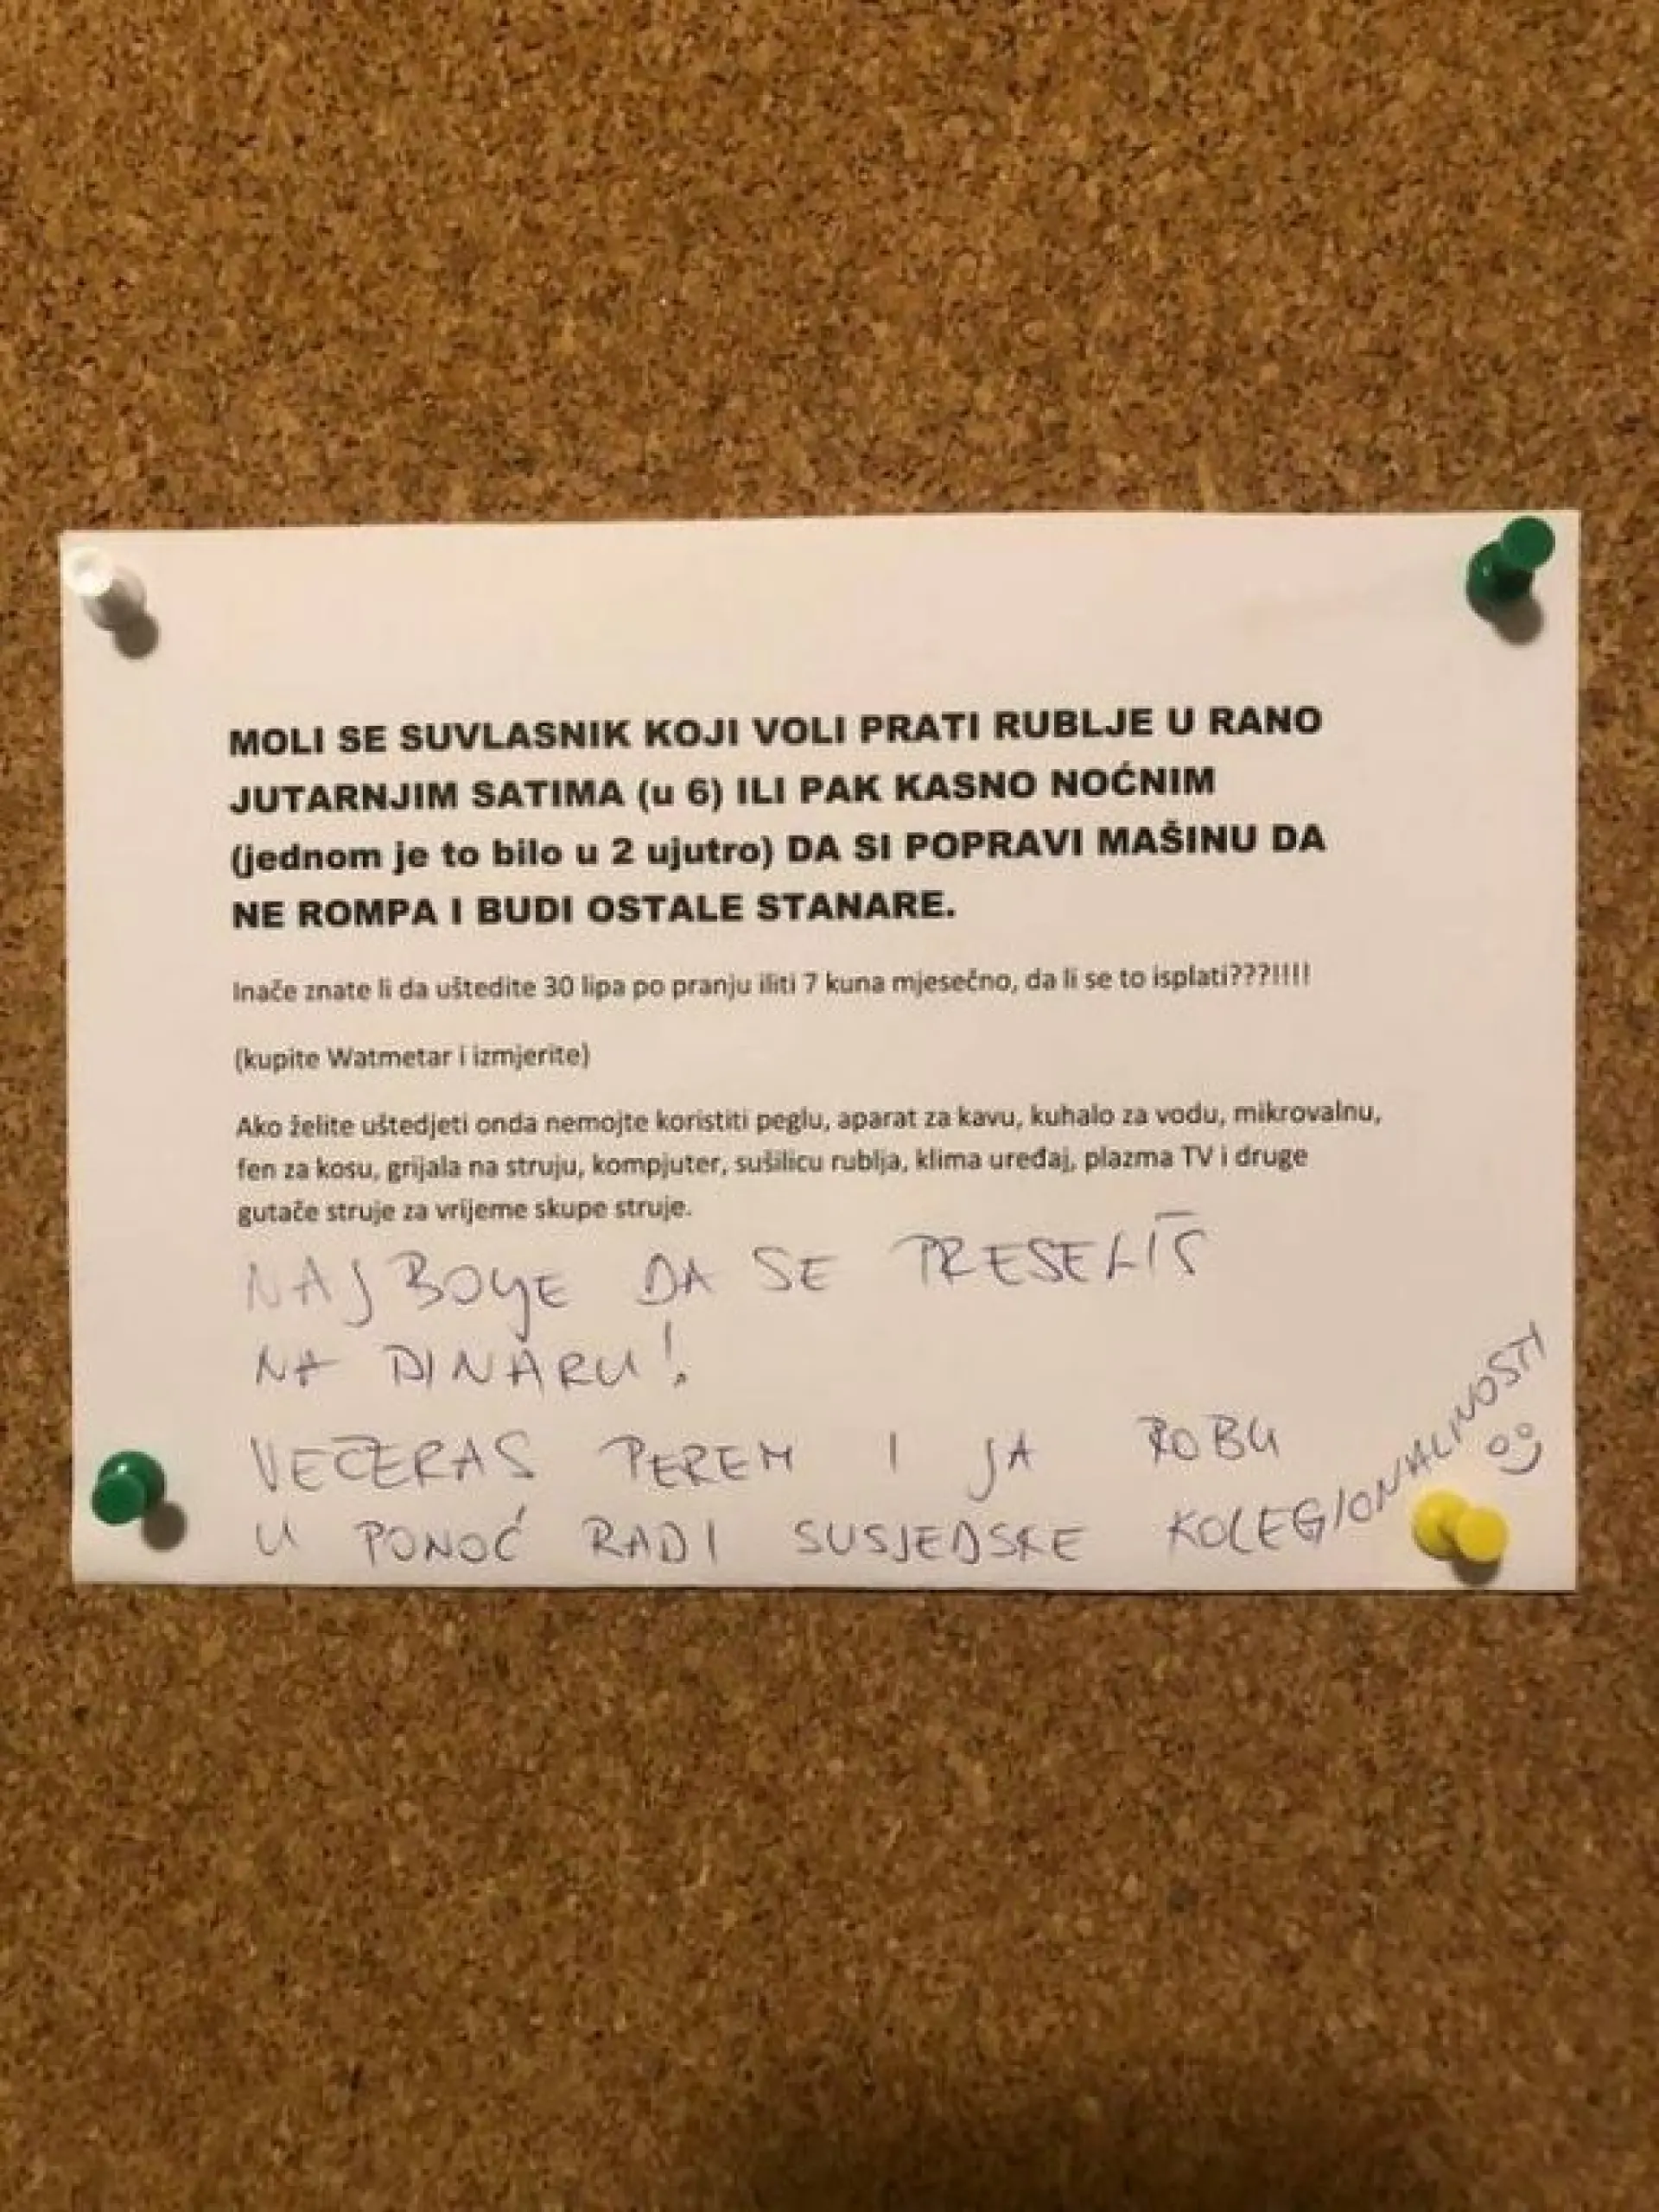 MOLI SE SUVLASNIK KOJI VOLI PRATI RUBLJE U RANO
JUTARNJIM SATIMA (u 6) ILI PAK KASNO NOĆNIM
(jednom je to bilo u 2 ujutro) DA SI POPRAVI MAŠINU DA
NE ROMPA I BUDI OSTALE STANARE.
Inače znate li da uštedite 30 lipa po pranju iliti 7 kuna mjesečno, da li se to isplati???!!!!
(kupite Watmetar i izmjerite)
Ako želite uštedjeti onda nemojte koristiti peglu, aparat za kavu, kuhalo za vodu, mikrovalnu,
fen za kosu, grijala na struju, kompjuter, sušilicu rublja, klima uređaj, plazma TV i druge
gutače struje za vrijeme skupe struje.
NAJBOLJE DA SE PRESELIŠ
NA DINARU!
VEČERAS PEREM I JA ROBU
U PONOĆ RADI SUSJEDSKE KOLEGIONALNOSTI